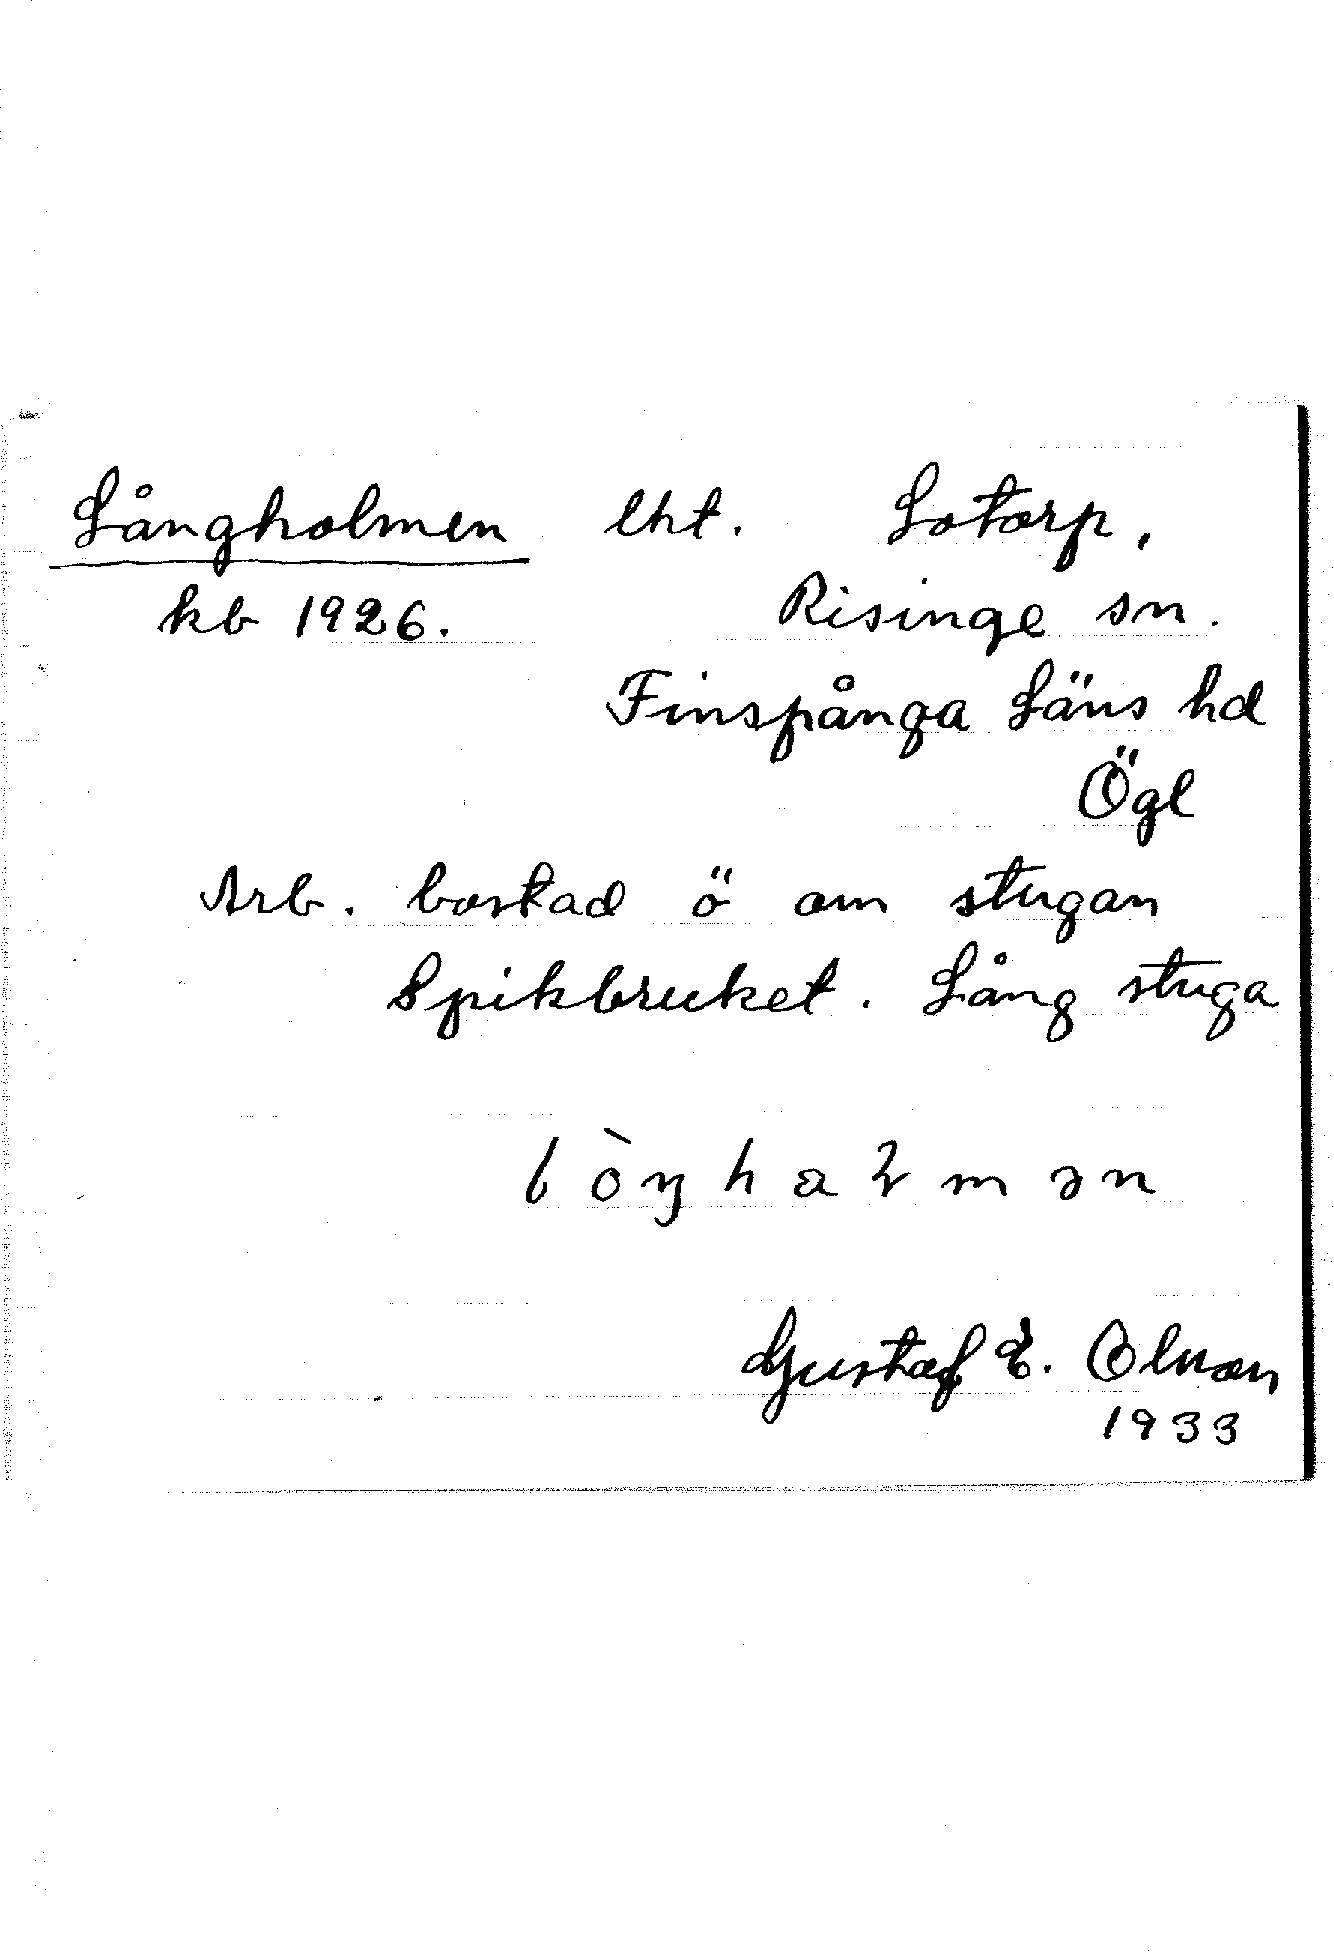 Långholmen lht. Lotorp,
kb 1926. Risinge sn.
Finspånga Läns hd
Ögl
Arb. bostad ö om stugan
Spikbruket. Lång stuga
Gustaf E. Olsson
1933